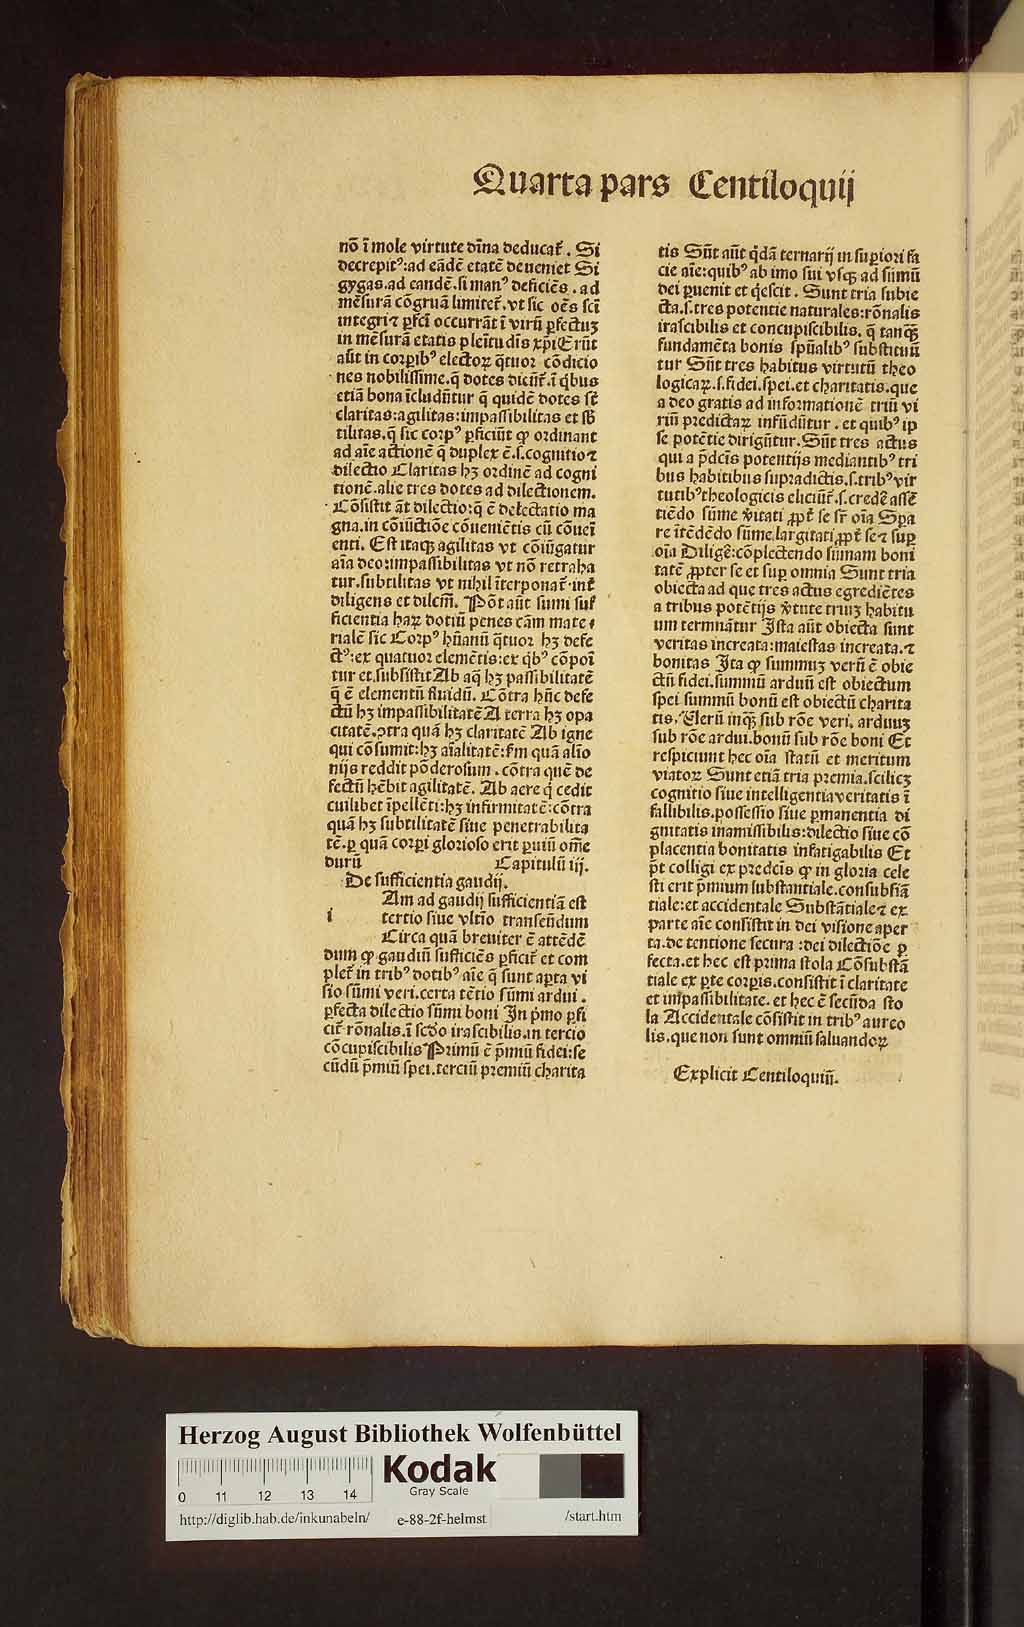 Quarta pars Centiloquij
nō ī mole virtute dīna deducat᷑. Si
decrepitꝰ: ad eādē etatē deueniet Si
gygas. ad eandē. si manꝰ deficiēs. ad
mēsurā cōgruā limitet᷑. vt sic oēs scī
integri ⁊ ꝑfcī occurrāt ī virū ꝑfectuꝫ
in mēsurā etatis pleītudīs xp̄i Erūt
aūt in corꝑibꝰ electoꝝ q̄tuor cōdicio
nes nobilissime. q̄ dotes dicūt᷑. ī q̄bus
etiā bona īcludūtur q̄ quidē dotes sūt
claritas: agilitas: impassibilitas et sb̄
tilitas. q̄ sic corpꝰ ꝑficiūt ꝙ ordinant
ad aīe actionē q̄ duplex ē. s. cognitio ⁊
dilectio Claritas hꝫ ordinē ad cogni
tionē. alie tres dotes ad dilectionem.
Cōsistit āt dilectio: q̄ ē delectatio ma
gna. in cōiūctiōe cōueniētis cū cōueī
enti. Est itaqꝫ agilitas vt cōiūgatur
aīa deo: impassibilitas vt nō retraha
tur. subtilitas vt nihil īterponat᷑ int᷑
diligens et dilcm̄. Pōt aūt sumi suf
ficientia haꝝ dotiū penes cām mate
rialē sic Corpꝰ hūanū q̄tuor hꝫ defe
ctꝰ: ex quatuor elemētis: ex q̄bꝰ cōpoī
tur et. subsistit Ab aq̄ hꝫ passibilitatē
q̄ ē elementū fluidū. Cōtra hūc defe
ctū hꝫ impassibilitatē A terra hꝫ opa
citatē. ↄtra quā hꝫ claritatē Ab igne
qui cōsumit: hꝫ aīalitatē: ẜm quā alīo
nijs reddit pōderosum. cōtra quē de
fectū hēbit agilitatē. Ab aere q̄ cedit
cuilibet īpellēti: hꝫ infirmitatē: cōtra
quā hꝫ subtilitatē siue penetrabilita
tē. ꝑ quā corꝑi glorioso erit ꝑuiū om̄e
durū Capitulū iij.
De sufficientia gaudij.
i Am ad gaudij sufficientiā est
tertio siue vltīo transeūdum
Circa quā breuiter ē attēdē
dum ꝙ gaudiū sufficiēs ꝑficit᷑ et com
plet᷑ in tribꝰ dotibꝰ aīe q̄ sunt aꝑta vi
sio sūmi veri. certa tētio sūmi ardui.
ꝑfecta dilectio sūmi boni In p̄mo ꝑfi
cit᷑ rōnalis. ī sc̄do irascibilis. in tercio
cōcupiscibilis Primū ē p̄miū fidei: se
cūdū p̄miū spei. terciū premiū charita
tis Sūt aūt q̄dā ternarij in suꝑiori fa
cie aīe: quibꝰ ab imo sui vsqꝫ ad sūmū
dei ꝑuenit et q̄escit. Sunt tria subie
cta. s. tres potentie naturales: rōnalis
irascibilis et concupiscibilis. q̄ tanqꝫ
fundamēta bonis spūalibꝰ substituū
tur Sūt tres habitus virtutū theo
logicaꝝ. s. fidei. spei. et charitatis. que
a deo gratis ad informationē triū vi
riū predictaꝝ infūdūtur. et quibꝰ ip
se potētie dirigūtur. Sūt tres actus
qui a p̄dcīs potentijs mediantibꝰ tri
bus habitibus supradictis. s. tribꝰ vir
tutibꝰ theologicis eliciūt᷑. s. credē assē
tiēdo sūme v̄itati ꝓpt᷑ se sr̄ oīa Sꝑa
re ītēdēdo sūme largitati ꝓpt᷑ se ⁊ suꝑ
oīa Diligē: cōplectendo sūmam boni
tatē ꝓpter se et suꝑ omnia Sunt tria
obiecta ad que tres actus egrediētes
a tribus potētijs v̄tute triuꝫ habitu
um termnātur Ista aūt obiecta sunt
veritas increata: maiestas increata. ⁊
bonitas Ita ꝙ summuꝫ verū ē obie
ctū fidei. summū arduū est obiectum
spei summū bonū est obiectū charita
tis. Uerū inqꝫ sub rōe veri. arduuꝫ
sub rōe ardui. bonū sub rōe boni Et
respiciunt hec oīa statū et meritum
viatoꝝ Sunt etiā tria premia. scilicꝫ
cognitio siue intelligentia veritatis ī
fallibilis. possessio siue ꝑmanentia di
gnitatis inamissibilis: dilectio siue cō
placentia bonitatis infatigabilis Et
pt̄ colligi ex predcīs ꝙ in gloria cele
sti erit p̄mium substantiale. consubstā
tiale: et accidentale Substātiale ⁊ ex
parte aīe consistit in dei visione aper
ta. de tentione secura: dei dilectiōe ꝑ
fecta. et hec est prima stola Cōsubstā
tiale ex ꝑte corꝑis. consistit ī claritate
et impassibilitate. et hec ē secūda sto
la Accidentale cōsistit in tribꝰ aureo
lis. que non sunt omniū saluandoꝝ
Explicit Centiloquiū.
Herzog August Bibliothek Wolfenbüttel
0 11 12 13 14
Kodak
Gray Scale
http://diglib.hab.de/inkunabeln/ e-88-2f-helmst /start.htm